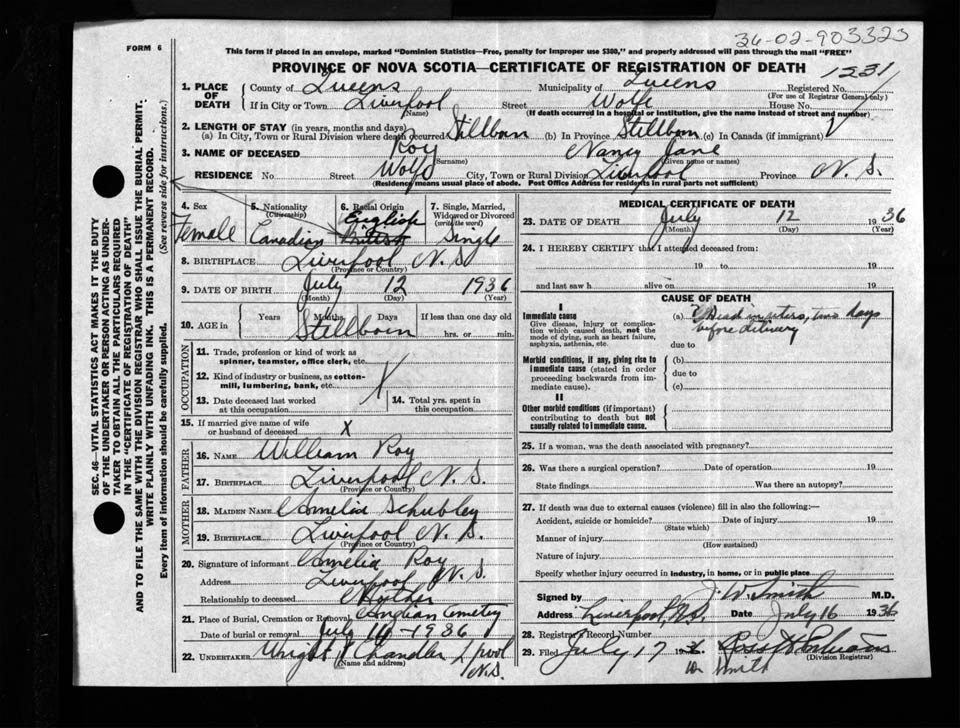 36-02-903323
FORM 6
This form if placed in an envelope, marked "Dominion Statistics—Free, penalty for improper use $300," and properly addressed will pass through the mail "FREE"
PROVINCE OF NOVA SCOTIA—CERTIFICATE OF REGISTRATION OF DEATH
1231
1. PLACE OF DEATH
County of Queens Municipality of Queens Registered No.
(For use of Registrar General only)
If in City or Town Liverpool Street Wolfe House No.
(Name) (If death occurred in a hospital or institution, give the name instead of street and number)
2. LENGTH OF STAY (in years, months and days)
(a) In City, Town or Rural Division where death occurred Stillborn (b) In Province Stillborn (c) In Canada (if immigrant)
3. NAME OF DECEASED Roy Nancy Jane
(Surname) (Given name or names)
RESIDENCE No. Street Wolfe City, Town or Rural Division Liverpool Province N. S.
(Residence means usual place of abode. Post Office Address for residents in rural parts not sufficient)
4. Sex Female
5. Nationality (Citizenship) Canadian
6. Racial Origin English British
7. Single, Married, Widowed or Divorced (write the word) Single
8. BIRTHPLACE Liverpool N. S.
(Province or Country)
9. DATE OF BIRTH July 12 1936
(Month) (Day) (Year)
10. AGE in Years Months Days If less than one day old
Stillborn hrs. or min.
OCCUPATION
11. Trade, profession or kind of work as spinner, teamster, office clerk, etc.
12. Kind of industry or business, as cotton-mill, lumbering, bank, etc.
13. Date deceased last worked at this occupation
14. Total yrs. spent in this occupation
15. If married give name of wife or husband of deceased X
FATHER
16. NAME William Roy
17. BIRTHPLACE Liverpool N. S.
(Province or Country)
MOTHER
18. MAIDEN NAME Amelia
19. BIRTHPLACE Liverpool N. S.
(Province or Country)
20. Signature of informant Amelia Roy
Address Liverpool N. S.
Relationship to deceased Mother
21. Place of Burial, Cremation or Removal Cemetery
Date of burial or removal July 16-1936
22. UNDERTAKER Wright & Chandler L'pool N.S.
(Name and address)
MEDICAL CERTIFICATE OF DEATH
23. DATE OF DEATH July 12 1936
(Month) (Day) (Year)
24. I HEREBY CERTIFY that I attended deceased from:
19 to 19
and last saw h alive on 19
CAUSE OF DEATH
I
Immediate cause
Give disease, injury or complication which caused death, not the mode of dying, such as heart failure, asphyxia, asthenia, etc.
(a) ? Dead in utero, two days before delivery
due to
Morbid conditions, if any, giving rise to immediate cause (stated in order proceeding backwards from immediate cause).
(b)
due to
(c)
II
Other morbid conditions (if important) contributing to death but not causally related to immediate cause.
25. If a woman, was the death associated with pregnancy?
26. Was there a surgical operation? Date of operation 19
State findings Was there an autopsy?
27. If death was due to external causes (violence) fill in also the following:—
Accident, suicide or homicide? Date of injury 19
(State which)
Manner of injury
(How sustained)
Nature of injury
Specify whether injury occurred in industry, in home, or in public place
Signed by J. W. Smith M.D.
Address Liverpool, N.S. Date July 16 1936
28. Registrar's Record Number
29. Filed July 17 19
(Division Registrar)
Smith
SEC. 46—VITAL STATISTICS ACT MAKES IT THE DUTY
OF THE UNDERTAKER OR PERSON ACTING AS UNDER-
TAKER TO OBTAIN ALL THE PARTICULARS REQUIRED
IN THE "CERTIFICATE OF REGISTRATION OF DEATH"
AND TO FILE THE SAME WITH THE DIVISION REGISTRAR WHO SHALL ISSUE THE BURIAL PERMIT.
WRITE PLAINLY WITH UNFADING INK. THIS IS A PERMANENT RECORD.
Every item of information should be carefully supplied. (See reverse side for instructions.)